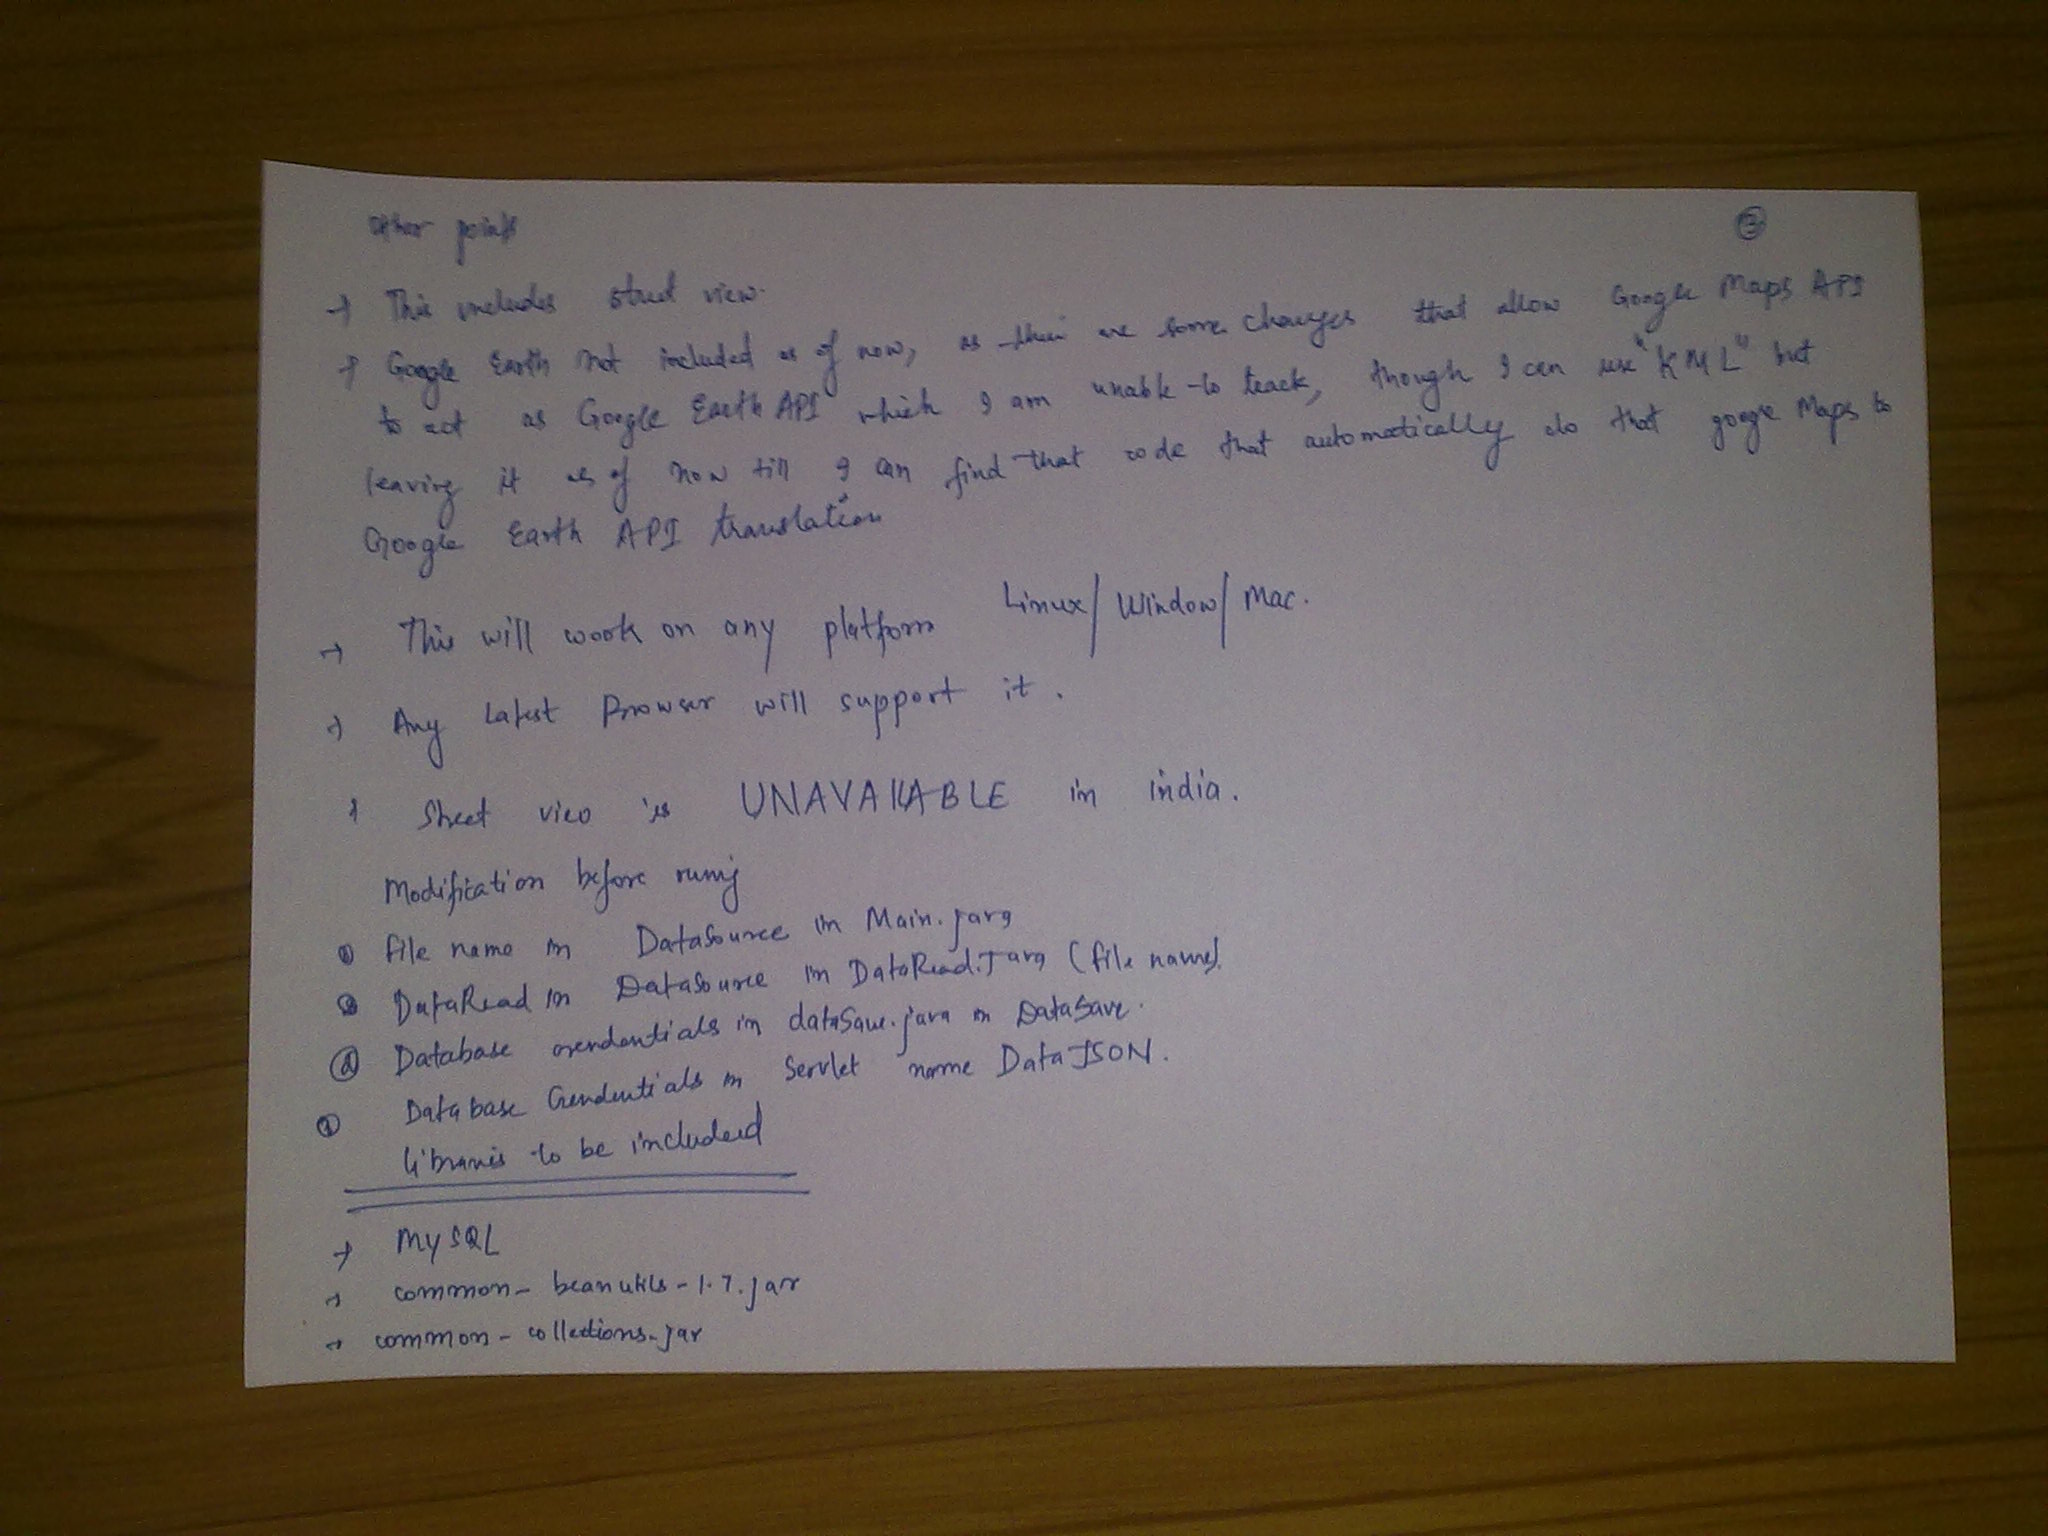 other points
③
→ This includes street view.
→ Google Earth not included as of now, as their are some changes that allow Google Maps API
to act as Google Earth API which I am unable to track, though I can use "KML" but
leaving it as of now till I can find that code that automatically do that google Maps to
Google Earth API translation
→ This will work on any platform Linux/Window/Mac.
→ Any Latest Browser will support it.
→ Street view is UNAVAILABLE in india.
Modification before runing
① file name in DataSource in Main.java
② DataRead in DataSource in DataRead.Java (file name).
Database crendentials in dataSave.java in DataSave.
Database Crendentials in Servlet name DataJSON.
libraries to be included
→ MySQL
→ common-beanutils-1.7.jar
→ common-collections.jar